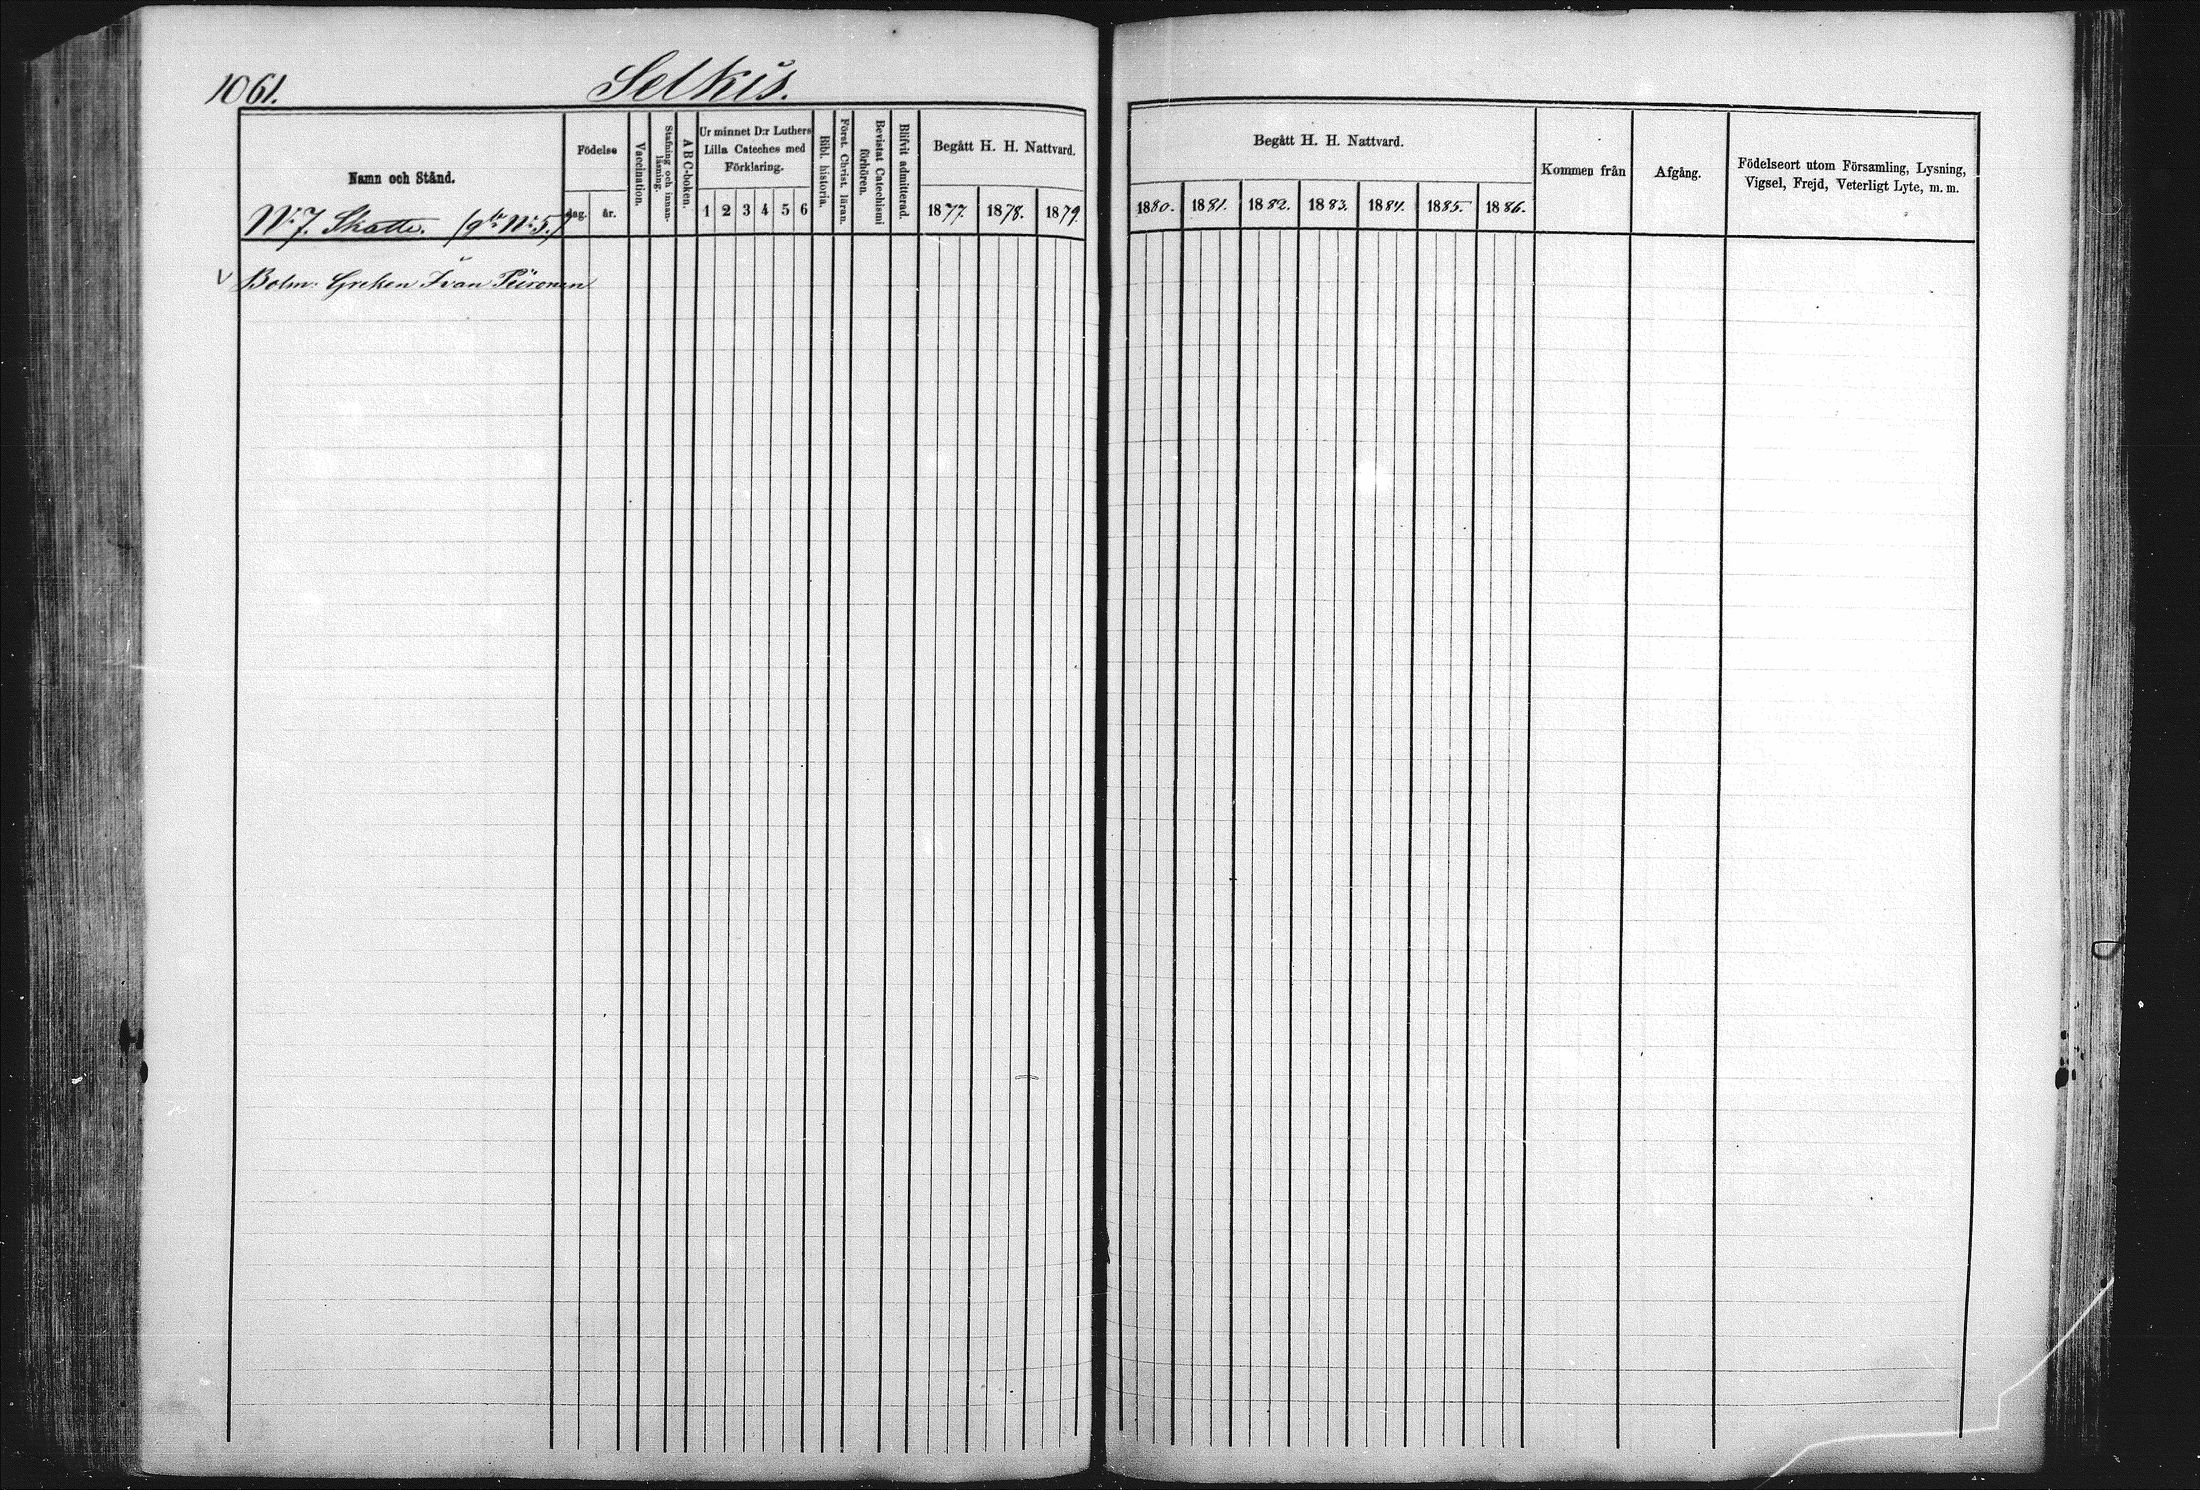 1061.
Selkis.
Namn och Stånd.
Födelse
dag.
år.
Vaccination.
Stafning och innan-
läsning.
ABC-boken.
Ur minnet D:r Luthers
Lilla Cateches med
Förklaring.
1 2 3 4 5 6
Bibl. historia.
Först. Christ. läran.
Bevistat Catechismi
förhören.
Blifvit admitterad.
Begått H. H. Nattvard.
1877. 1878. 1879.
N:7. Skatte. (gla N:5.)
Bolm. Greken Ivan Piironen
Begått H. H. Nattvard.
1880. 1881. 1882. 1883. 1884. 1885. 1886.
Kommen från
Afgång.
Födelseort utom Församling, Lysning,
Vigsel, Frejd, Veterligt Lyte, m. m.